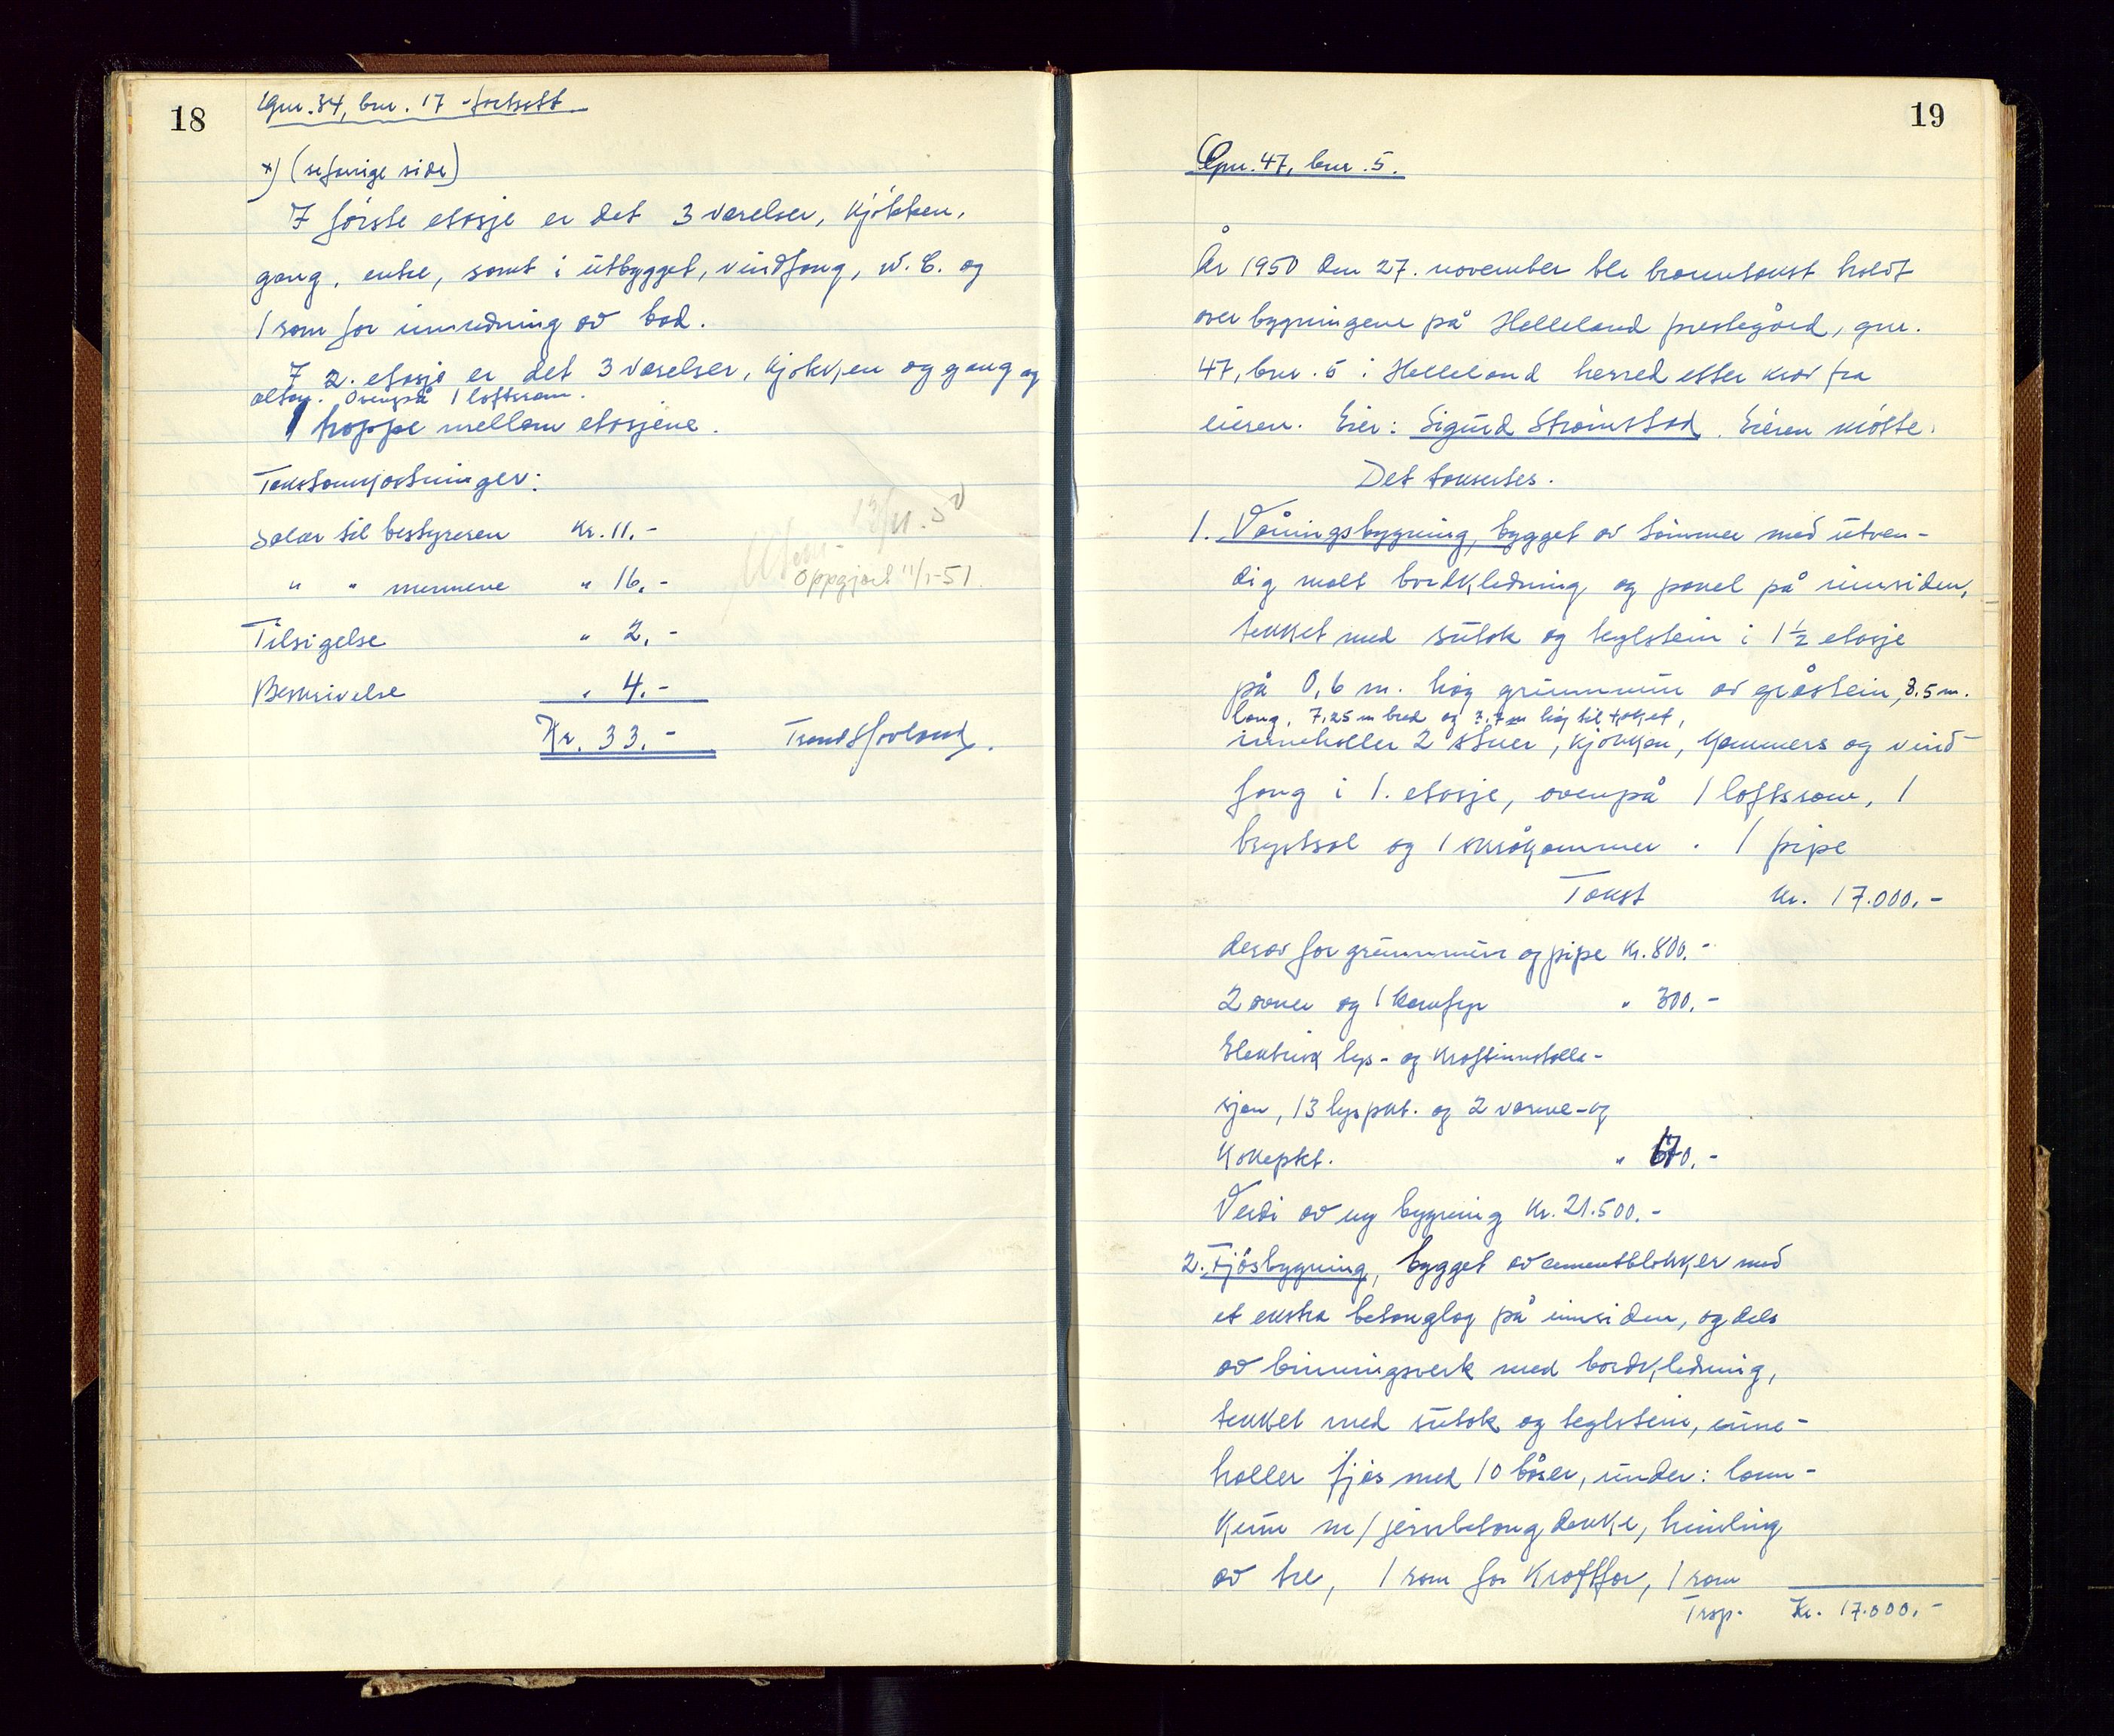 18
Gnr. 34, bnr. 17 - fortsatt
x) (se forrige side)
I første etasje er det 3 værelser, kjøkken,
gang, entre, samt i utbygget, vindfang, W.C. og
1 rom for innredning av bad.
I 2. etasje er det 3 værelser, kjøkken og gang og
altan. Ovenpå 1 loftsrom.
1 trappe mellom etasjene.
Takstomkostninger:
Salær til bestyreren Kr. 11.-
" " mennene " 16.-
Oppgjort 11/1-51.
Tilsigelse " 2.-
Beskrivelse " 4.-
Kr. 33.-
19
Gnr. 47, bnr. 5.
År 1950 den 27. november ble branntakst holdt
over bygningene på Helleland prestegård, gnr.
47, bnr. 5 i Helleland herred etter krav fra
eieren. Eier: Sigurd Strømstad. Eieren møtte.
Det takseres.
1. Våningsbygning, bygget av tømmer med utven-
dig malt bordkledning og panel på innsiden,
tekket med sutak og teglstein i 1 1/2 etasje
på 0,6 m. høg grunnmur av gråstein, 8.5 m.
lang, 7,25 m bred og 3,7 m høg til taket,
inneholler 2 stuer, kjøkken, kammers og vind-
fang i 1. etasje, ovenpå 1 loftsrom, 1
brystsal og 1 skråkammer. 1 pipe
Takst Kr. 17.000.-
derav for grunnmur og pipe Kr. 800.-
2 ovner og 1 komfyr " 300.-
Elektrisk lys- og kraftinnstalla-
sjon, 13 lyspkt. og 2 varme- og
kokepkt.
Verdi av ny bygning Kr. 21.500.-
2. Fjøsbygning, bygget av sementblokker med
et ekstra betonglag på innsiden, og dels
av binningsverk med bordkledning,
tekket med sutak og teglstein, inne-
holler fjøs med 10 båser, under: lann-
kum m/jernbetong dekke, himling
av tre, 1 rom for kraftfor, 1 rom
Trsp. Kr. 17.000.-